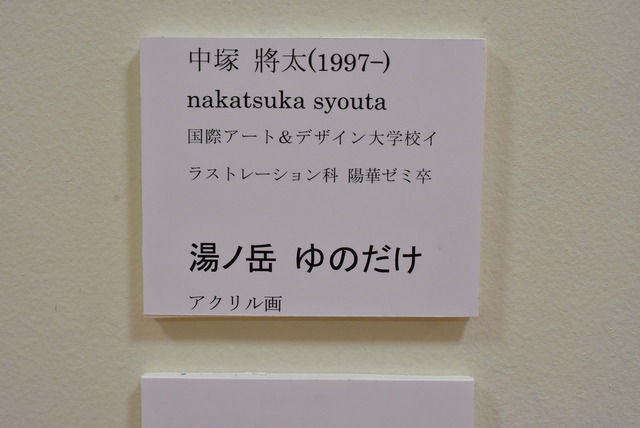 中塚 將太(1997–)
nakatsuka syouta
国際アート＆デザイン大学校イ
ラストレーション科 陽華ゼミ卒
湯ノ岳 ゆのだけ
アクリル画